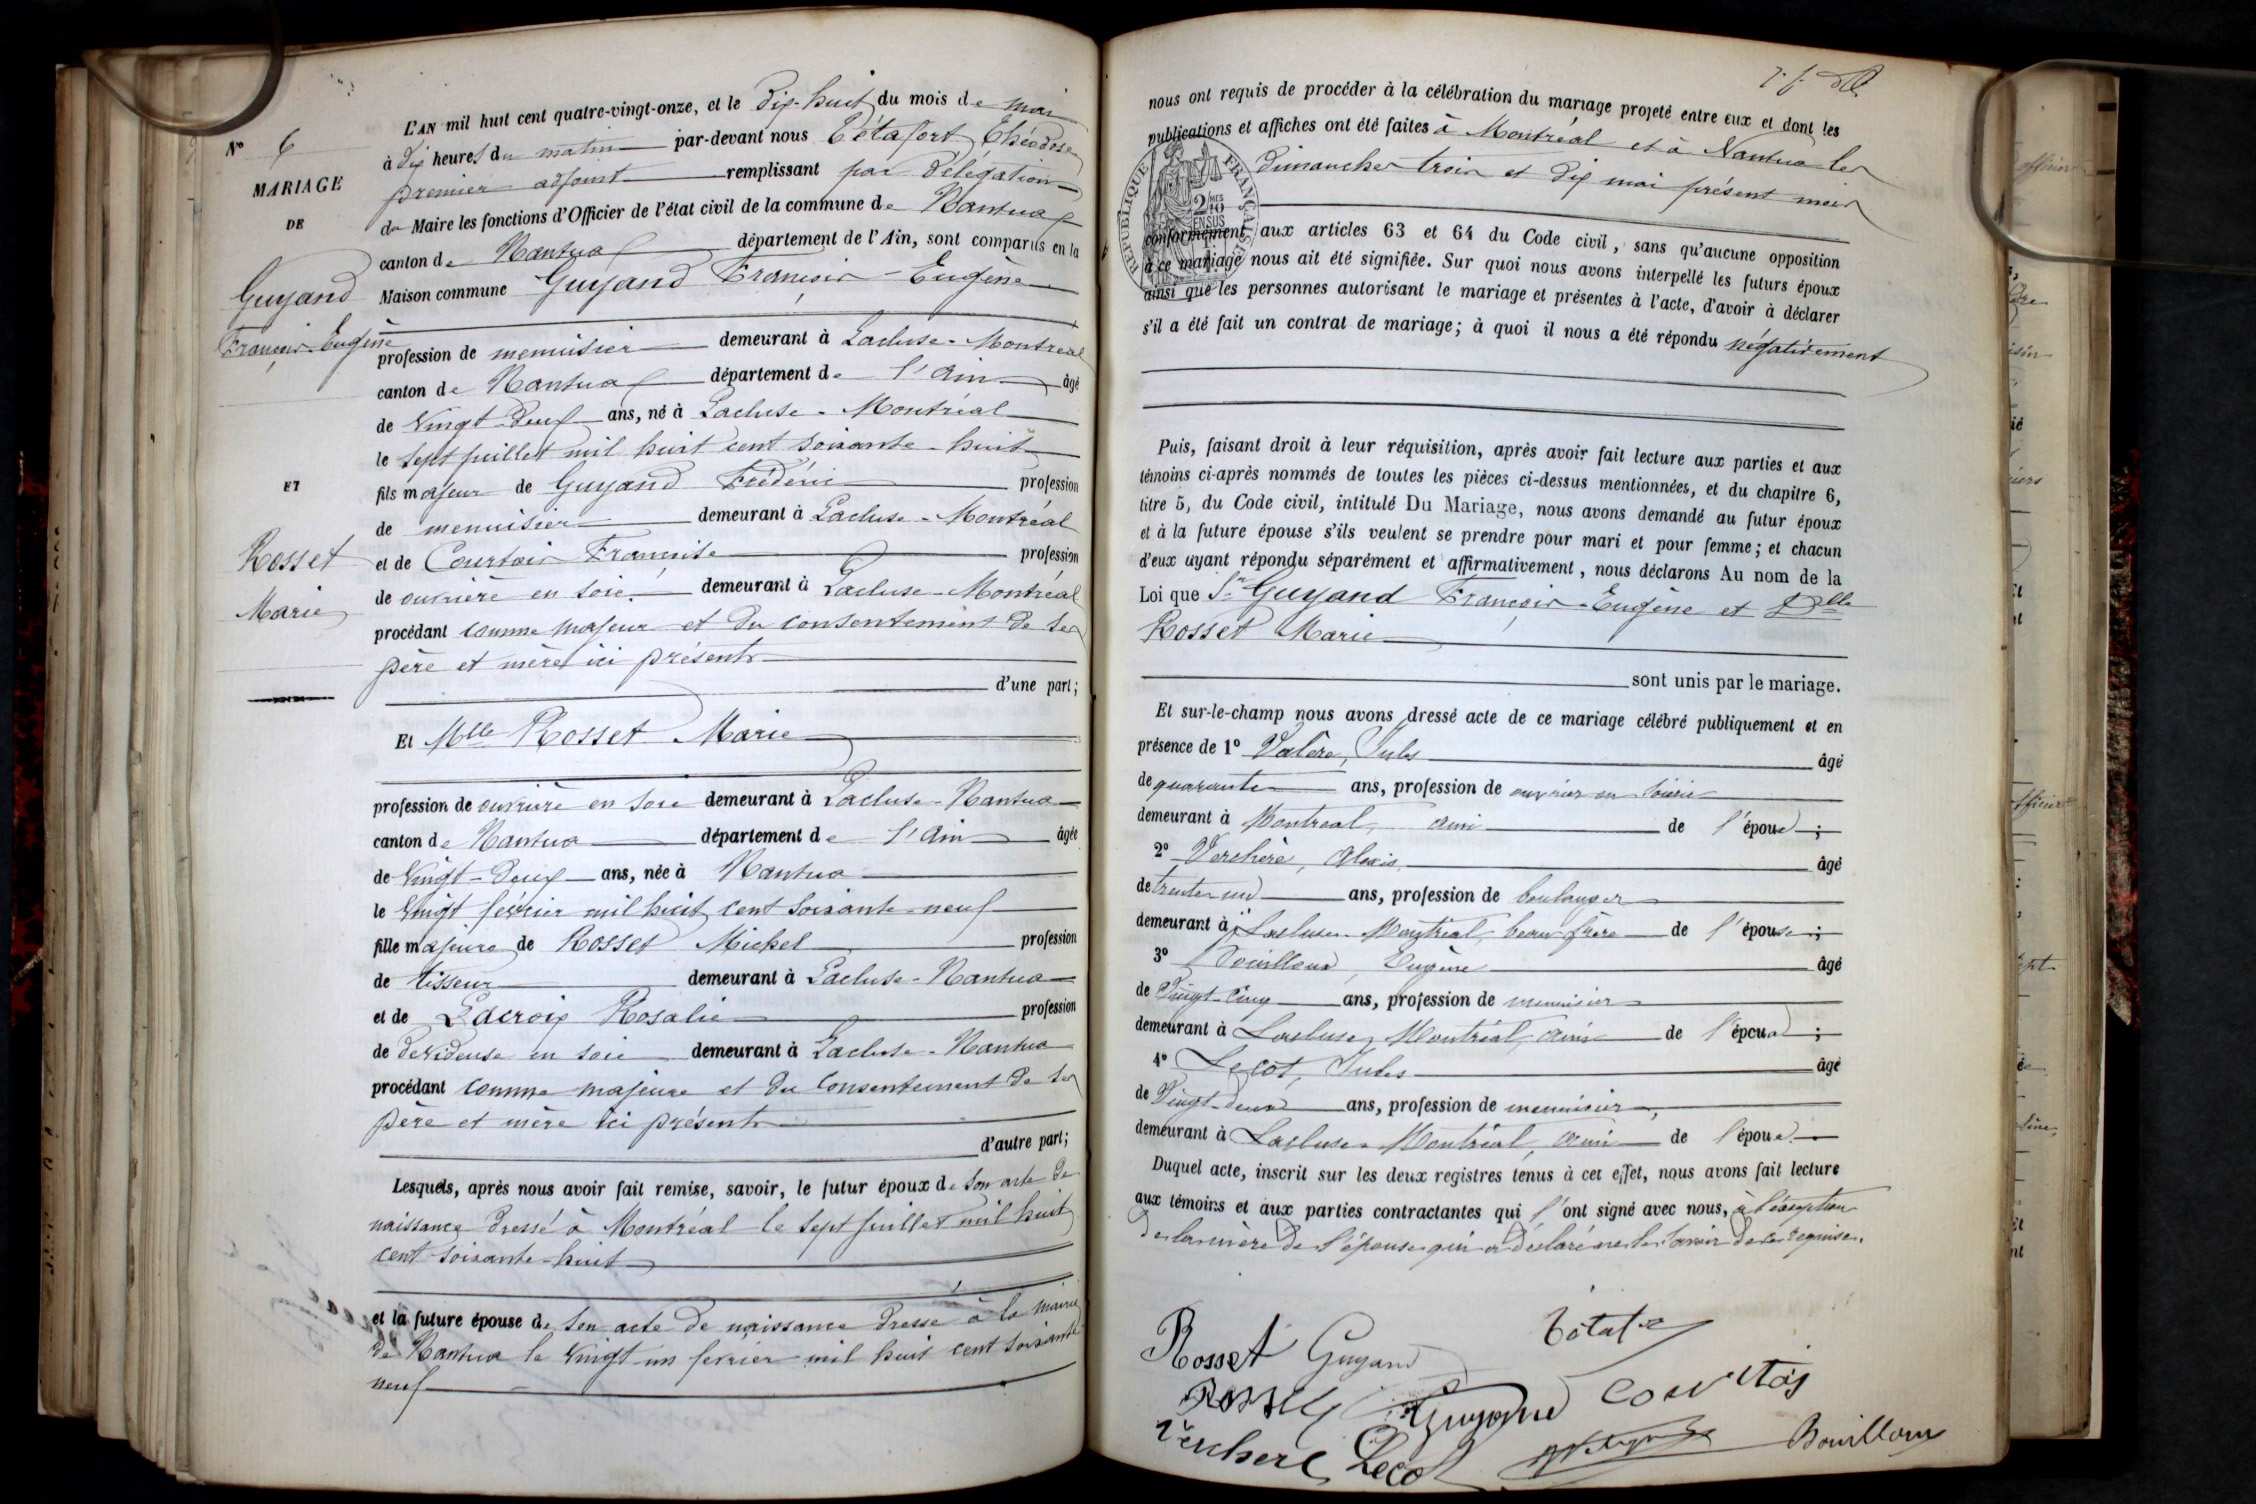 N° 6
MARIAGE
DE
Guyand
François-Eugène
ET
Rosset
Marie
L'AN mil huit cent quatre-vingt-onze, et le dix-huit du mois de mai
à dix heures du matin par-devant nous Tétafort Théodose
premier adjoint remplissant par délégation
du Maire les fonctions d'Officier de l'état civil de la commune de Nantua
canton de Nantua département de l'Ain, sont comparus en la
Maison commune Guyand François-Eugène
profession de menuisier demeurant à Lacluse-Montréal
canton de Nantua département de l'Ain âgé
de vingt-deux ans, né à Lacluse-Montréal
le sept juillet mil huit cent soixante-huit
fils majeur de Guyand Frédéric profession
de menuisier demeurant à Lacluse-Montréal
et de Courtois Françoise profession
de ouvrière en soie demeurant à Lacluse-Montréal
procédant comme majeur et du consentement de ses
père et mère ici présents
d'une part;
Et Mlle Rosset Marie
profession de ouvrière en soie demeurant à Lacluse-Nantua
canton de Nantua département de l'Ain âgée
de vingt-deux ans, née à Nantua
le vingt février mil huit cent soixante-neuf
fille majeure de Rosset Michel profession
de tisseur demeurant à Lacluse-Nantua
et de Lacroix Rosalie profession
de dévideuse en soie demeurant à Lacluse-Nantua
procédant comme majeure et du consentement de ses
père et mère ici présents
d'autre part;
Lesquels, après nous avoir fait remise, savoir, le futur époux de son acte de
naissance dressé à Montréal le sept juillet mil huit
cent soixante-huit
et la future épouse de son acte de naissance dressé à la mairie
de Nantua le vingt un février mil huit cent soixante
neuf
nous ont requis de procéder à la célébration du mariage projeté entre eux et dont les
publications et affiches ont été faites à Montréal et à Nantua les
dimanches trois et dix mai présent mois
RÉPUBLIQUE FRANÇAISE
2/10 MES
EN SUS
conformément aux articles 63 et 64 du Code civil, sans qu'aucune opposition
à ce mariage nous ait été signifiée. Sur quoi nous avons interpellé les futurs époux
ainsi que les personnes autorisant le mariage et présentes à l'acte, d'avoir à déclarer
s'il a été fait un contrat de mariage; à quoi il nous a été répondu négativement
Puis, faisant droit à leur réquisition, après avoir fait lecture aux parties et aux
témoins ci-après nommés de toutes les pièces ci-dessus mentionnées, et du chapitre 6,
titre 5, du Code civil, intitulé Du Mariage, nous avons demandé au futur époux
et à la future épouse s'ils veulent se prendre pour mari et pour femme; et chacun
d'eux ayant répondu séparément et affirmativement, nous déclarons Au nom de la
Loi que Sr Guyand François-Eugène et Dlle
Rosset Marie
sont unis par le mariage.
Et sur-le-champ nous avons dressé acte de ce mariage célébré publiquement et en
présence de 1° Valère, Jules âgé
de quarante ans, profession de ouvrier en soierie
demeurant à Montréal, ami de l'époux;
2° Verchère, Alexis, âgé
de trente-un ans, profession de boulanger
demeurant à Lacluse-Montréal, beau-frère de l'épouse;
3° Bouilloux, Eugène âgé
de vingt-cinq ans, profession de menuisier
demeurant à Lacluse, Montréal, ami de l'époux;
4° Lecot, Jules âgé
de vingt-deux ans, profession de menuisier,
demeurant à Lacluse-Montréal, ami de l'époux
Duquel acte, inscrit sur les deux registres tenus à cet effet, nous avons fait lecture
aux témoins et aux parties contractantes qui l'ont signé avec nous, à l'exception
de la mère de l'épouse qui a déclaré ne le savoir de ce requise.
Rosset Guyand
Rosset Guyand Courtois
Verchere Lecot Bouilloux